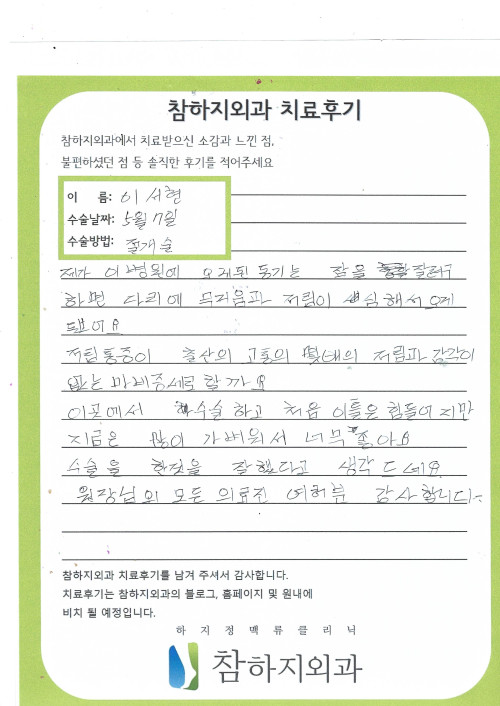 참하지외과 치료후기
참하지외과에서 치료받으신 소감과 느낀 점,
불편하셨던 점 등 솔직한 후기를 적어주세요
이 름: 이서현
수술날짜: 5월 7일
수술방법: 절개술
제가 이병원에 오게된 동기는 잠을
하면 다리에 무거움과 저림이 심해서 오게
됬어요
저림통증이 출산의 고통의 몇배의 저림과 감각이
없는 마비증세로 할까요
이곳에서 수술하고 처음 이틀은 힘들어지만
지금은 많이 가벼워서 너무 좋아요
수술을 한것을 잘했다고 생각드네요
원장님외 모든 의료진 여허분 감사합니다.
참하지외과 치료후기를 남겨 주셔서 감사합니다.
치료후기는 참하지외과의 블로그, 홈페이지 및 원내에
비치 될 예정입니다.
하지정맥류클리닉
참하지외과